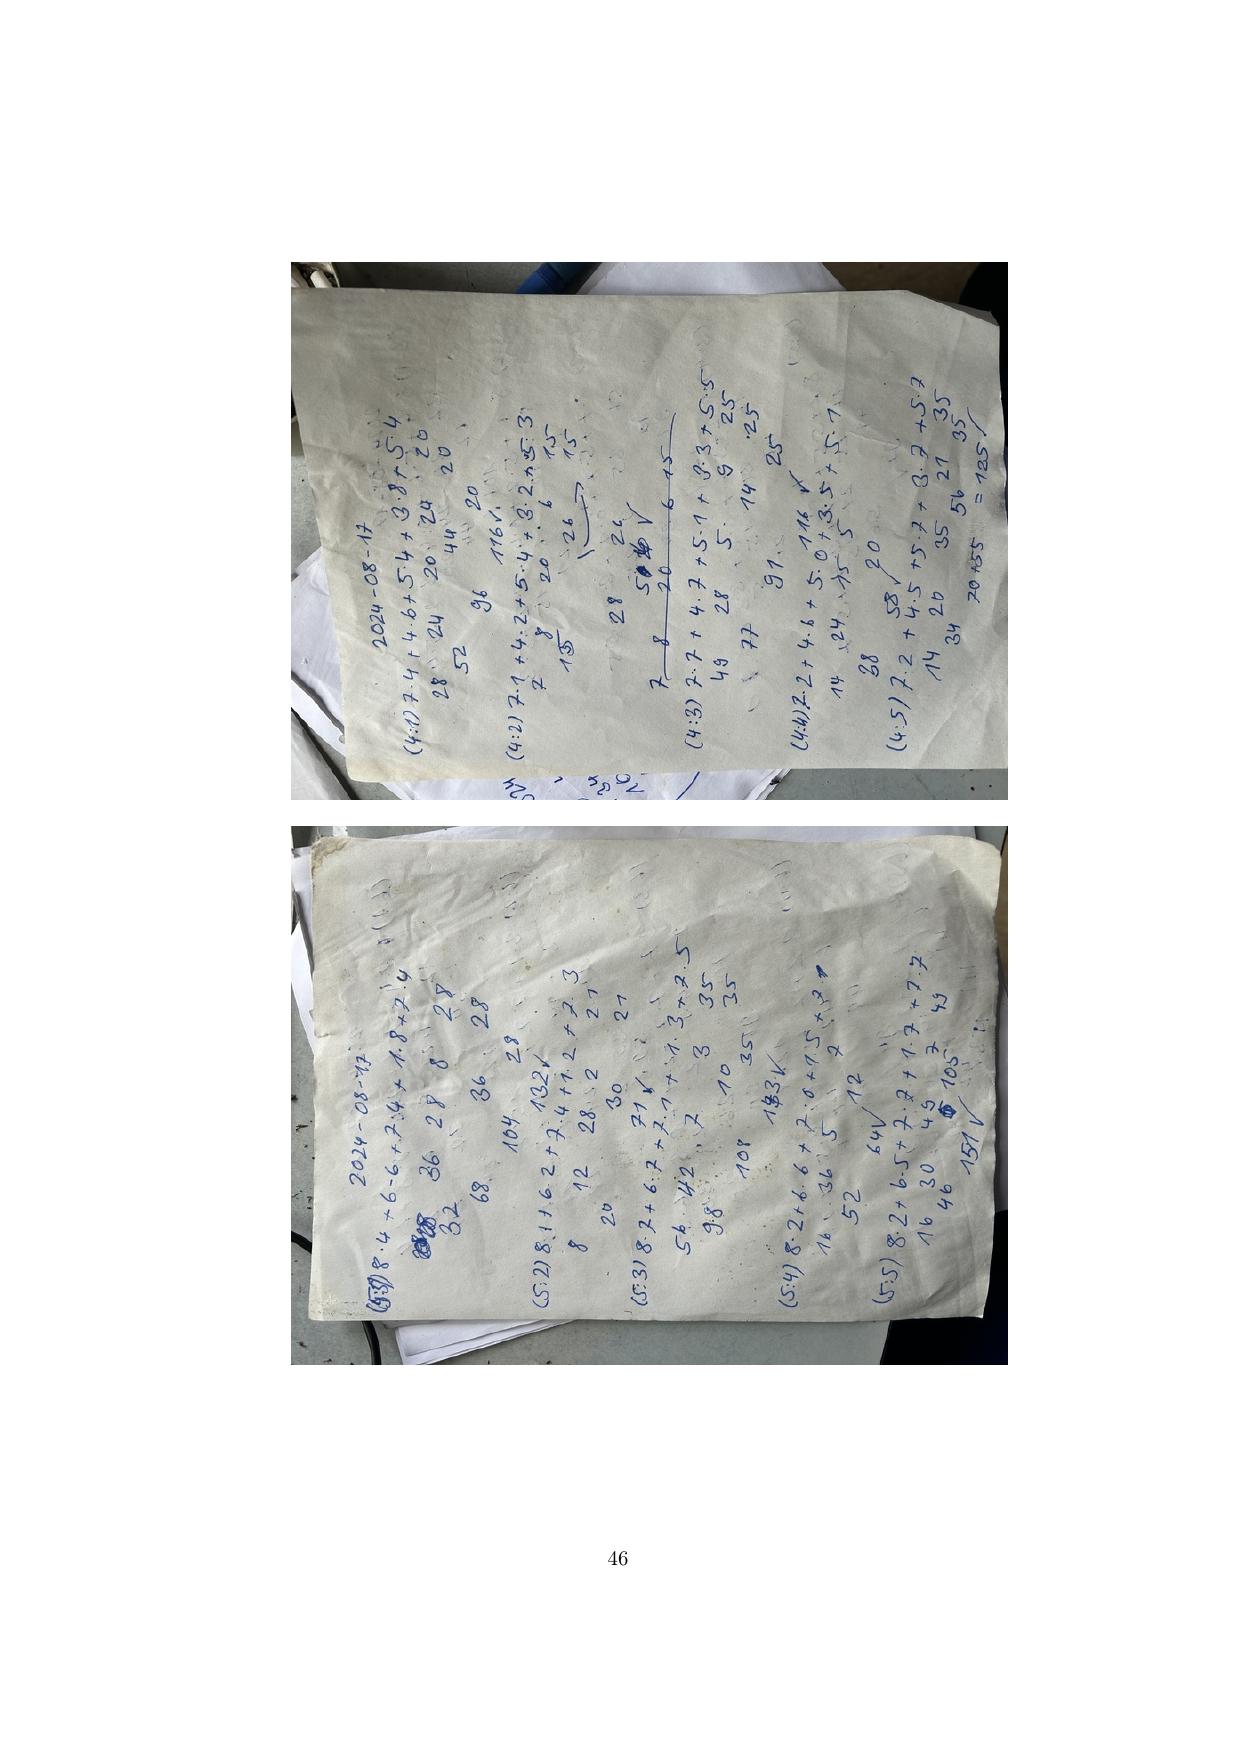 2024-08-17
(4:1) 7·4 + 4·6 + 5·4 + 3·8 + 5·4
28 24 20 24 20
52 44 20
96 20
116 ✓
(4:2) 7·1 + 4·2 + 5·4 + 3·2 + 5·3
7 8 20 6 15
15 26 15
28 26
✓
7 8 20 6 15
(4:3) 7·7 + 4·7 + 5·1 + 3·3 + 5·5
49 28 5 9 25
77 14 25
91 25
116 ✓
(4:4) 7·2 + 4·6 + 5·0 + 3·5 + 5·1
14 24 15 5
38 20
58 ✓
(4:5) 7·2 + 4·5 + 5·7 + 3·7 + 5·7
14 20 35 21 35
34 56 35
70+55 = 125 ✓
2024-08-17
8·4 + 6·6 + 7·4 + 1·8 + 7·4
32 36 28 8 28
68 36 28
104 28
132 ✓
(5:2) 8·1 + 6·2 + 7·4 + 1·2 + 7·3
8 12 28 2 21
20 30 21
71 ✓
(5:3) 8·7 + 6·7 + 7·1 + 1·3 + 7·5
56 42 7 3 35
98 10 35
108 35
143 ✓
(5:4) 8·2 + 6·6 + 7·0 + 1·5 + 7·1
16 36 5 7
52 12
64 ✓
(5:5) 8·2 + 6·5 + 7·7 + 1·7 + 7·7
16 30 49 7 49
46 105
151 ✓
46